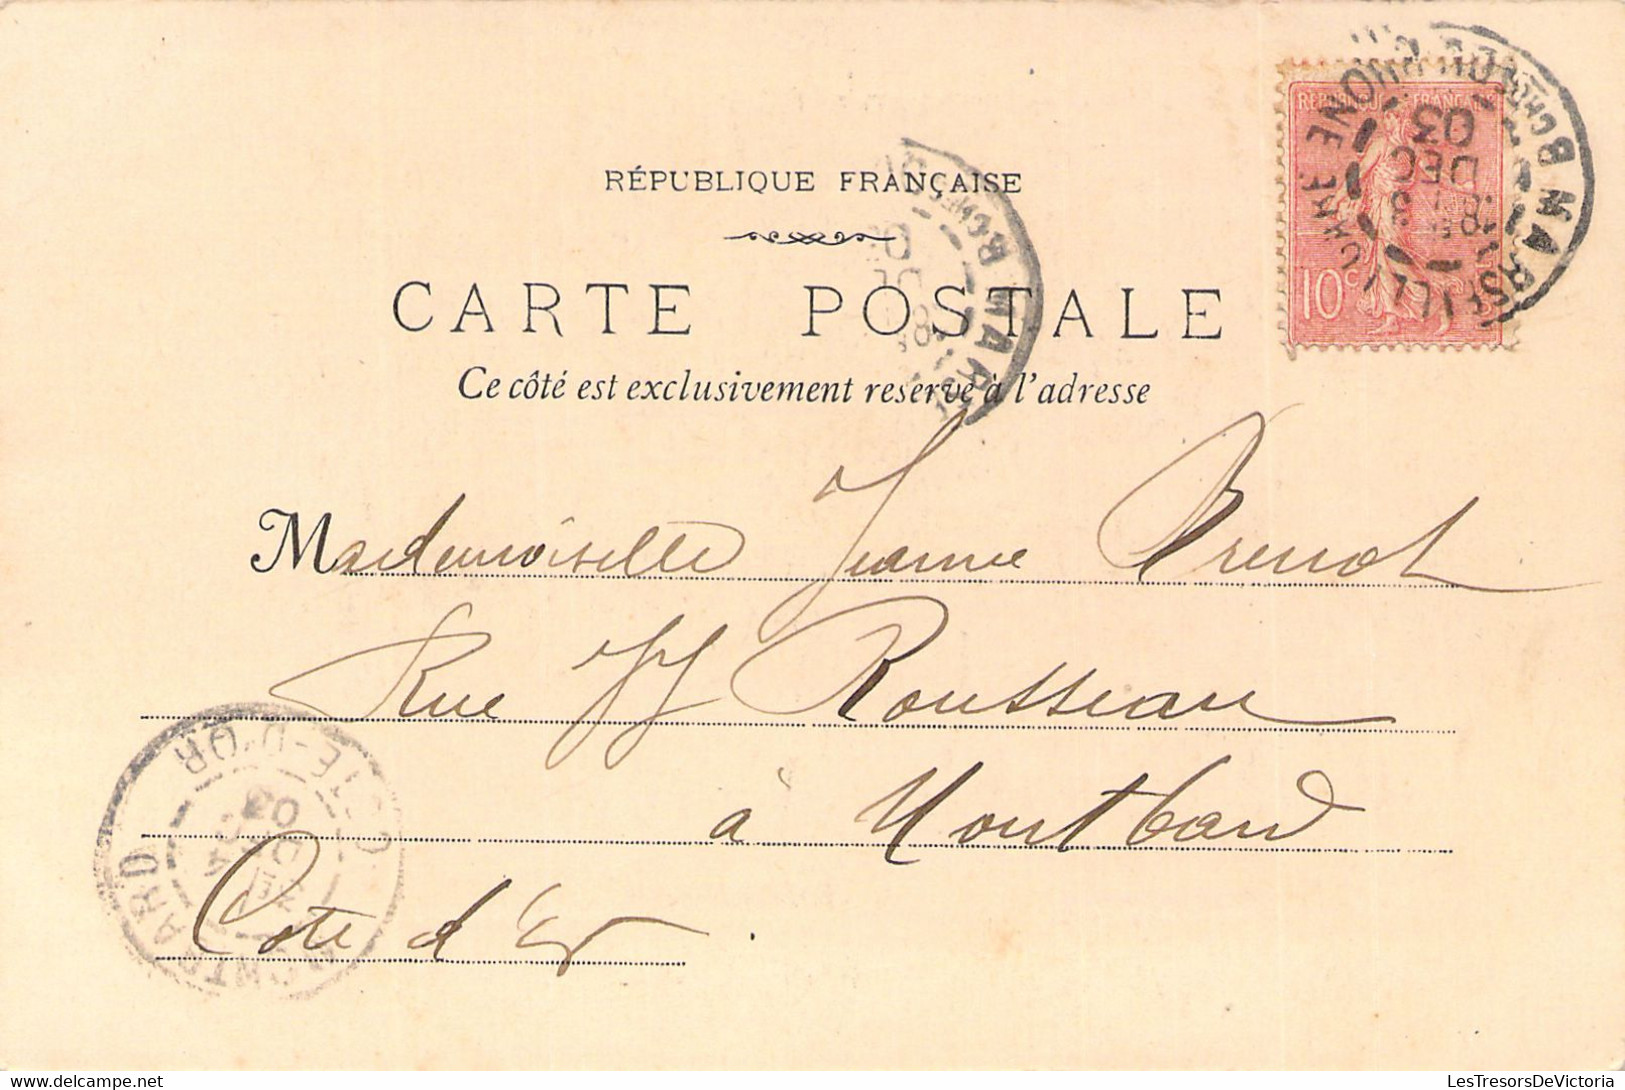 RÉPUBLIQUE FRANÇAISE
CARTE POSTALE
Ce côté est exclusivement reservé à l'adresse
RÉPUBLIQUE FRANÇAISE
10c
MARSEILLE
BCHES DU RHONE
DEC
03
Mademoiselle Jeanne
Rue JJ Rousseau
à Montbard
Cote d'Or
MONTBARD
COTE-D'OR
03
LesTresorsDeVictoria
www.delcampe.net
LesTresorsDeVictoria